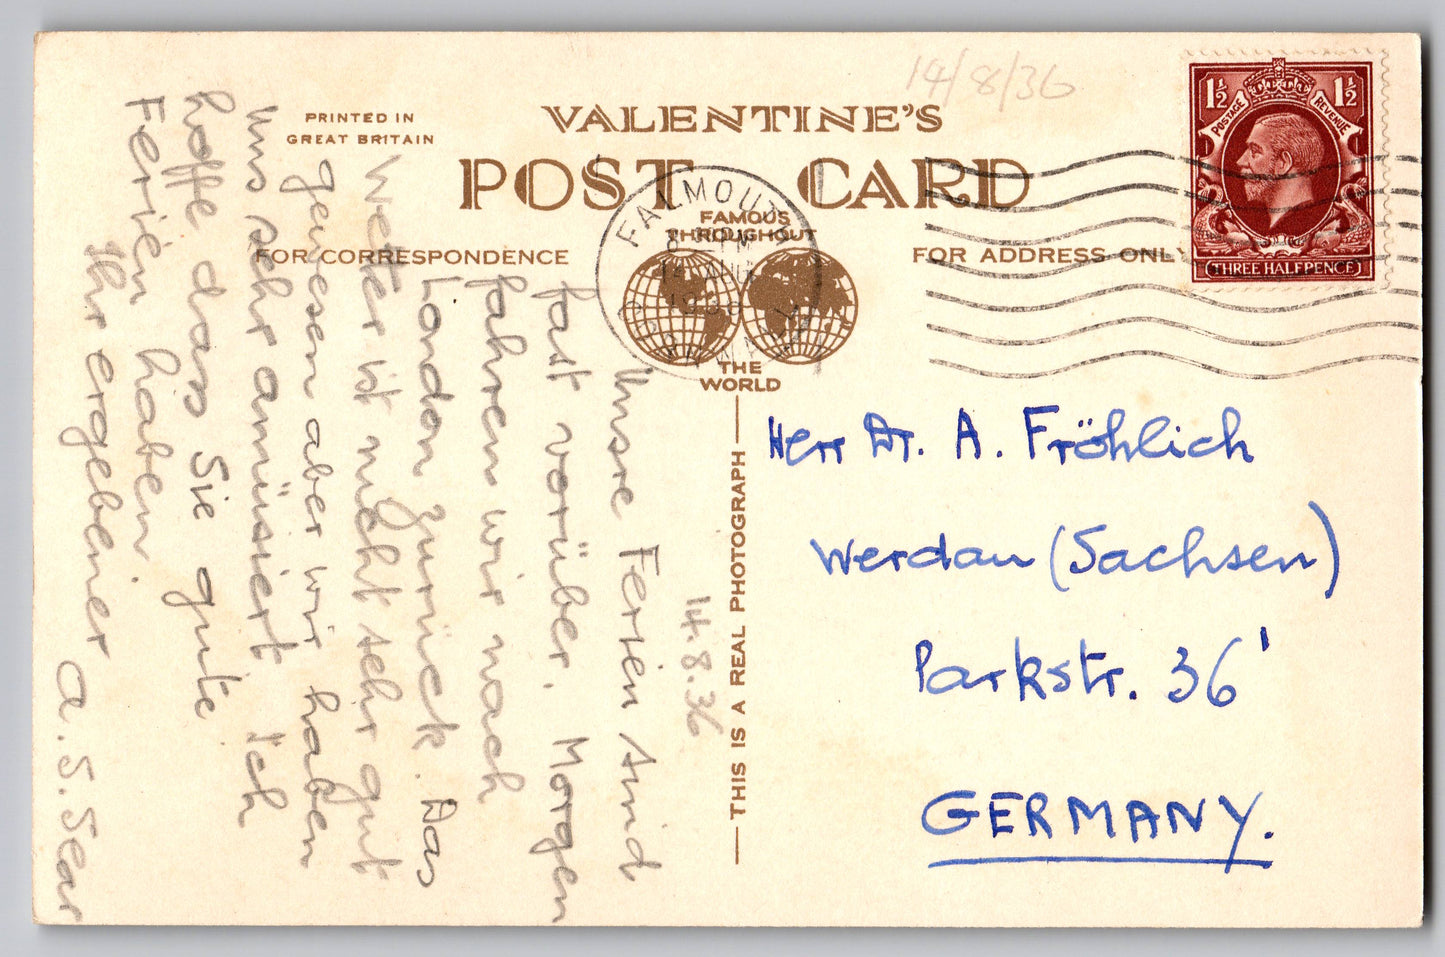 14/8/36
PRINTED IN
GREAT BRITAIN
VALENTINE'S
POST CARD
FAMOUS
THROUGHOUT
THE
WORLD
FOR CORRESPONDENCE
FOR ADDRESS ONLY
FALMOUTH
14 AUG
POSTAGE
REVENUE
1½ 1½
THREE HALFPENCE
THIS IS A REAL PHOTOGRAPH
14.8.36
Unsre Ferien sind
fast vorüber. Morgen
fahren wir nach
London zurück. Das
Wetter ist nicht sehr gut
gewesen aber wir haben
uns sehr amüsiert. Ich
hoffe dass Sie gute
Ferien haben
Ihr ergebener
A. S. Sear
Herr Dr. A. Fröhlich
Werdau (Sachsen)
Parkstr. 36'
GERMANY.